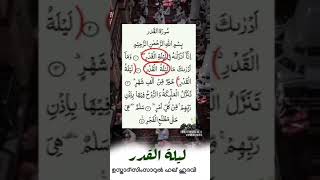 سُورَةُ القَدْرِ
بِسْمِ اللهِ الرَّحْمٰنِ الرَّحِيْمِ
إِنَّا أَنْزَلْنٰهُ فِي لَيْلَةِ الْقَدْرِ ١ وَمَا
أَدْرٰىكَ مَا لَيْلَةُ الْقَدْرِ ٢ لَيْلَةُ
الْقَدْرِ خَيْرٌ مِنْ أَلْفِ شَهْرٍ ٣
تَنَزَّلُ الْمَلٰئِكَةُ وَالرُّوحُ فِيهَا بِإِذْنِ
رَبِّهِمْ مِنْ كُلِّ أَمْرٍ ٤ سَلٰمٌ هِيَ
حَتّٰى مَطْلَعِ الْفَجْرِ ٥
ليلة القدر
ഉസ്താദ് സിംസാറുൽ ഹഖ് ഹുദവി